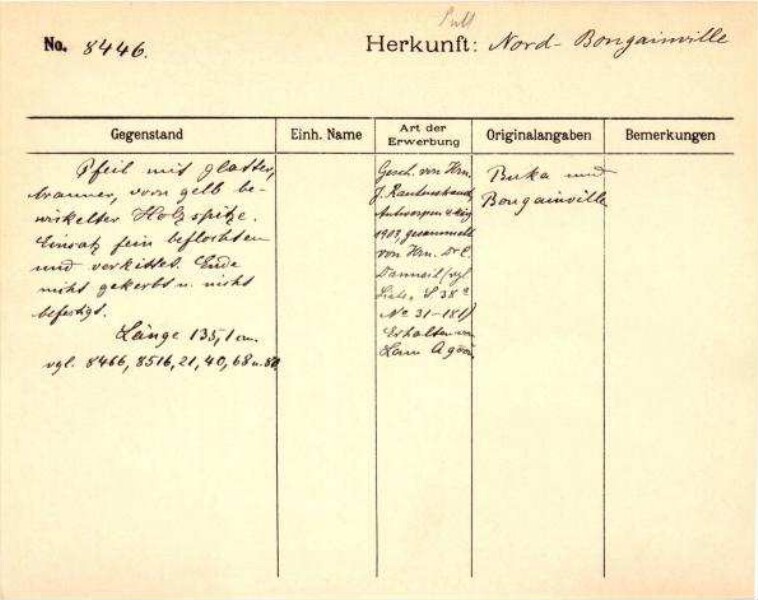 No. 8446.
Herkunft: Nord- Bougainville
Gegenstand
Einh. Name
Art der
Erwerbung
Originalangaben
Bemerkungen
Pfeil mit glatter,
brauner, vorn gelb be-
wickelter Holzspitze.
Einsatz fein beflochten
und verkittet. Ende
nicht gekerbt u. nicht
befestigt.
Länge 135,1 cm.
vgl. 8466, 8516, 21, 40, 68 u. 80
Gesch. von Hrn.
J. Rautenstrauch
Antwerpen
1903, gesammelt
von Hrn. Dr C.
Danneil (vgl
Liste, S 38
No 31-181)
Erhalten
Buka und
Bougainville